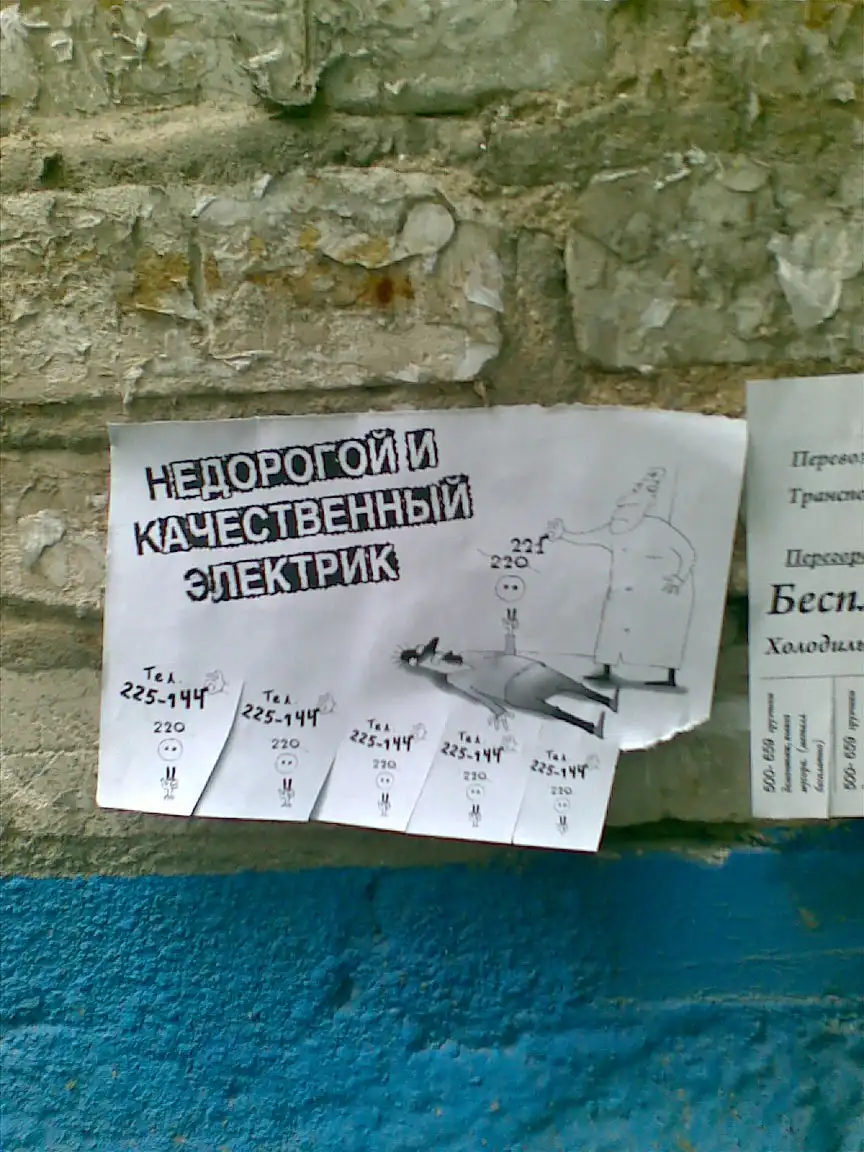 НЕДОРОГОЙ И
КАЧЕСТВЕННЫЙ
ЭЛЕКТРИК
221
220
Тел.
225-144
220
Тел.
225-144
220
Тел.
225-144
220
Тел.
225-144
220
Тел.
225-144
220
Перевоз
Трансп
Перегор
Бесп
Холодиль
500-659 грузчики
бесплатно)
500-659